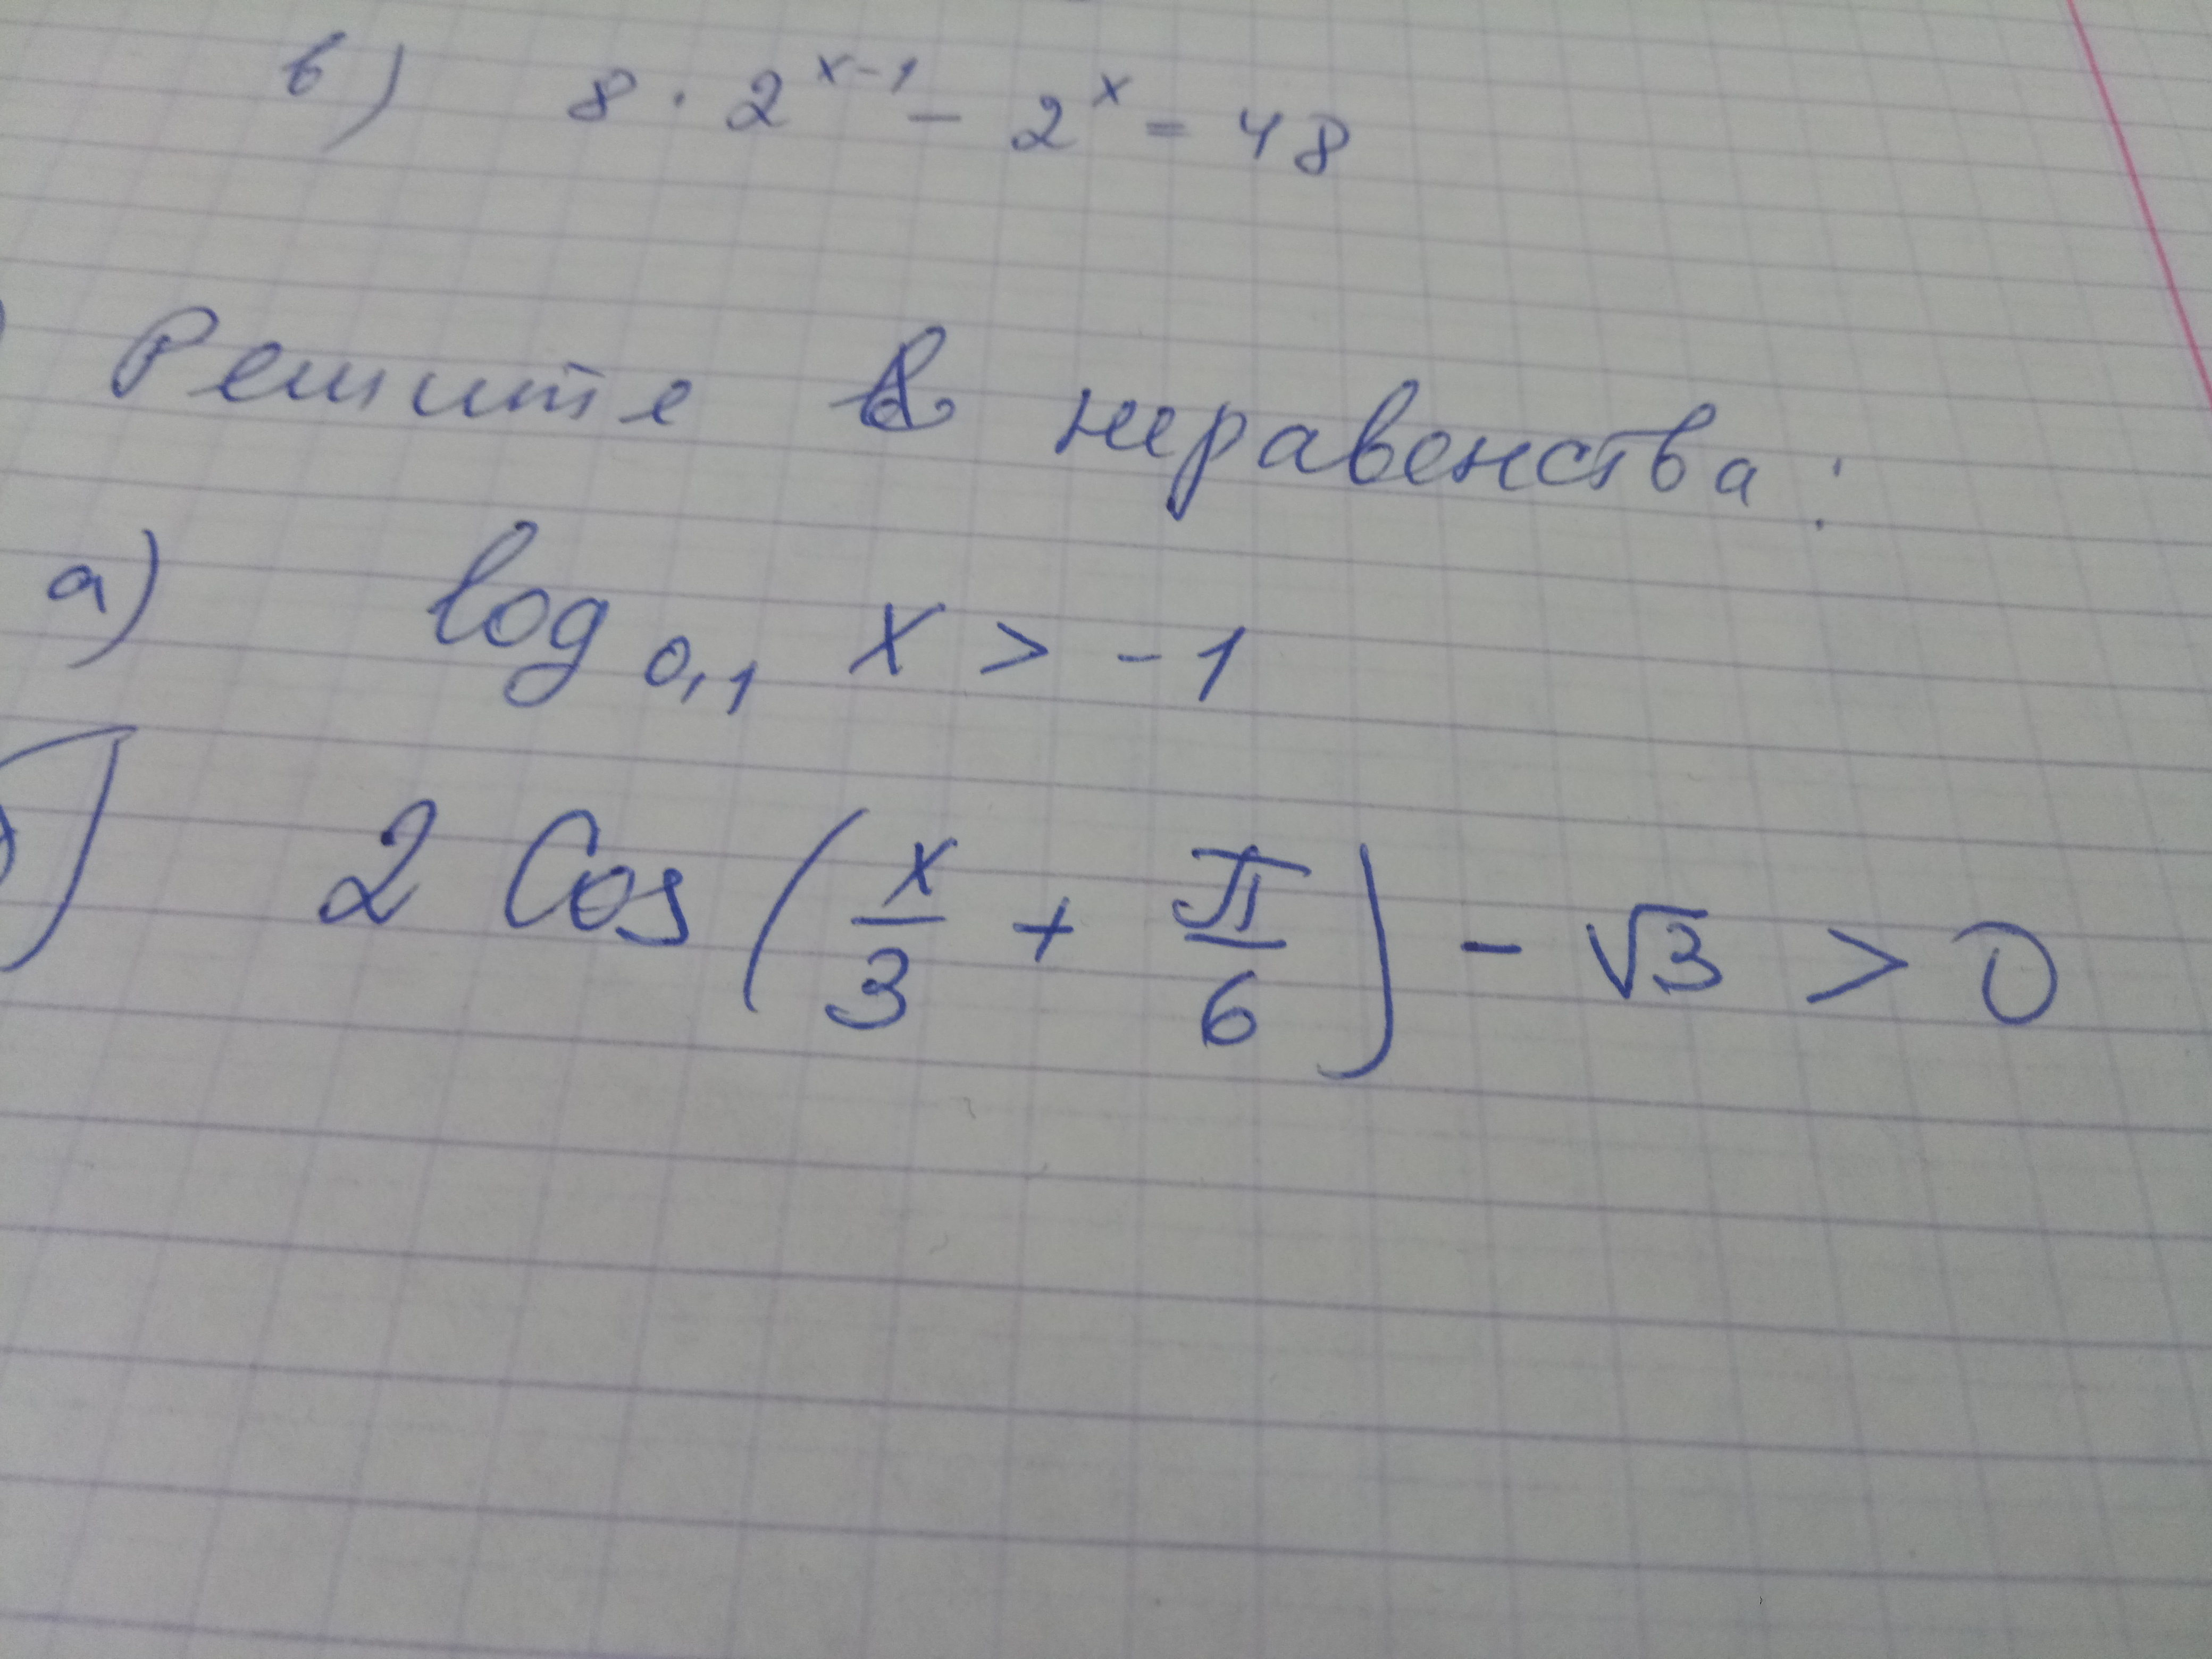 в) 8 · 2^(x-1) - 2^x = 48
Решите неравенства:
а) log_0,1 x > -1
) 2 Cos(x/3 + π/6) - √3 > 0